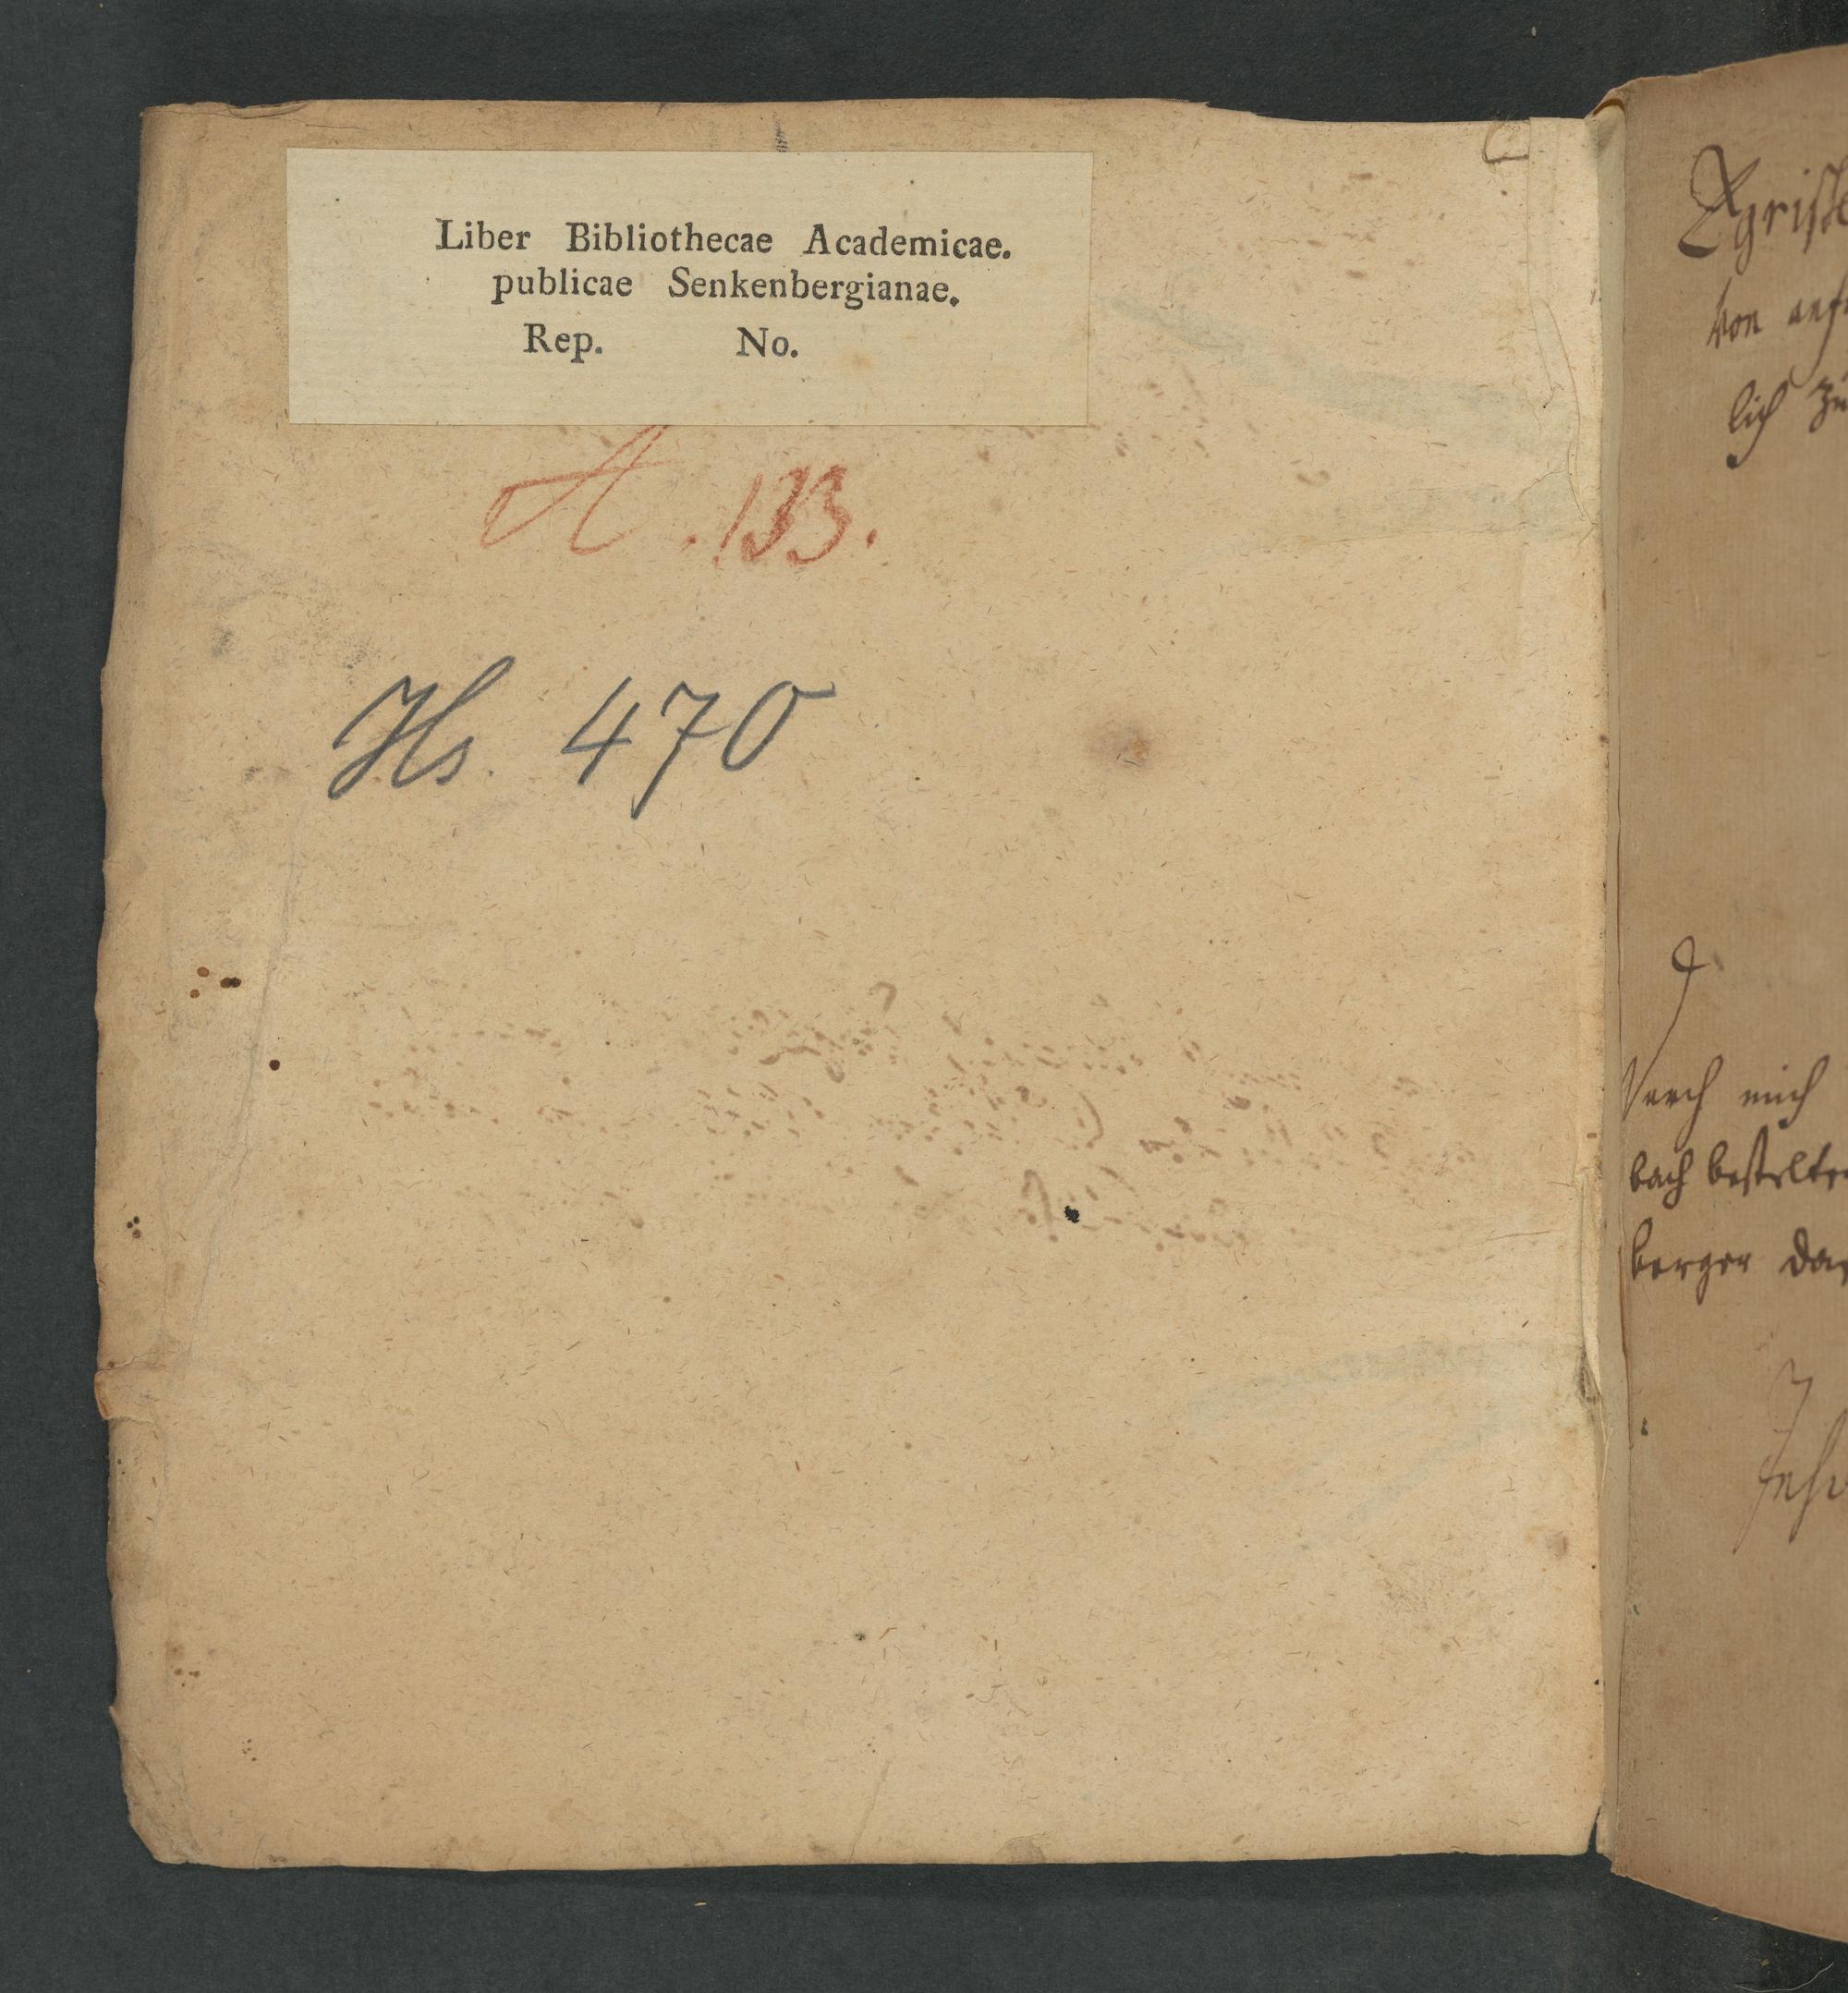 Liber Bibliothecae Academicae.
publicae Senkenbergianae.
Rep. No.
A. 133.
Hs. 470
von
lich
durch mich
bach bestelte
berger